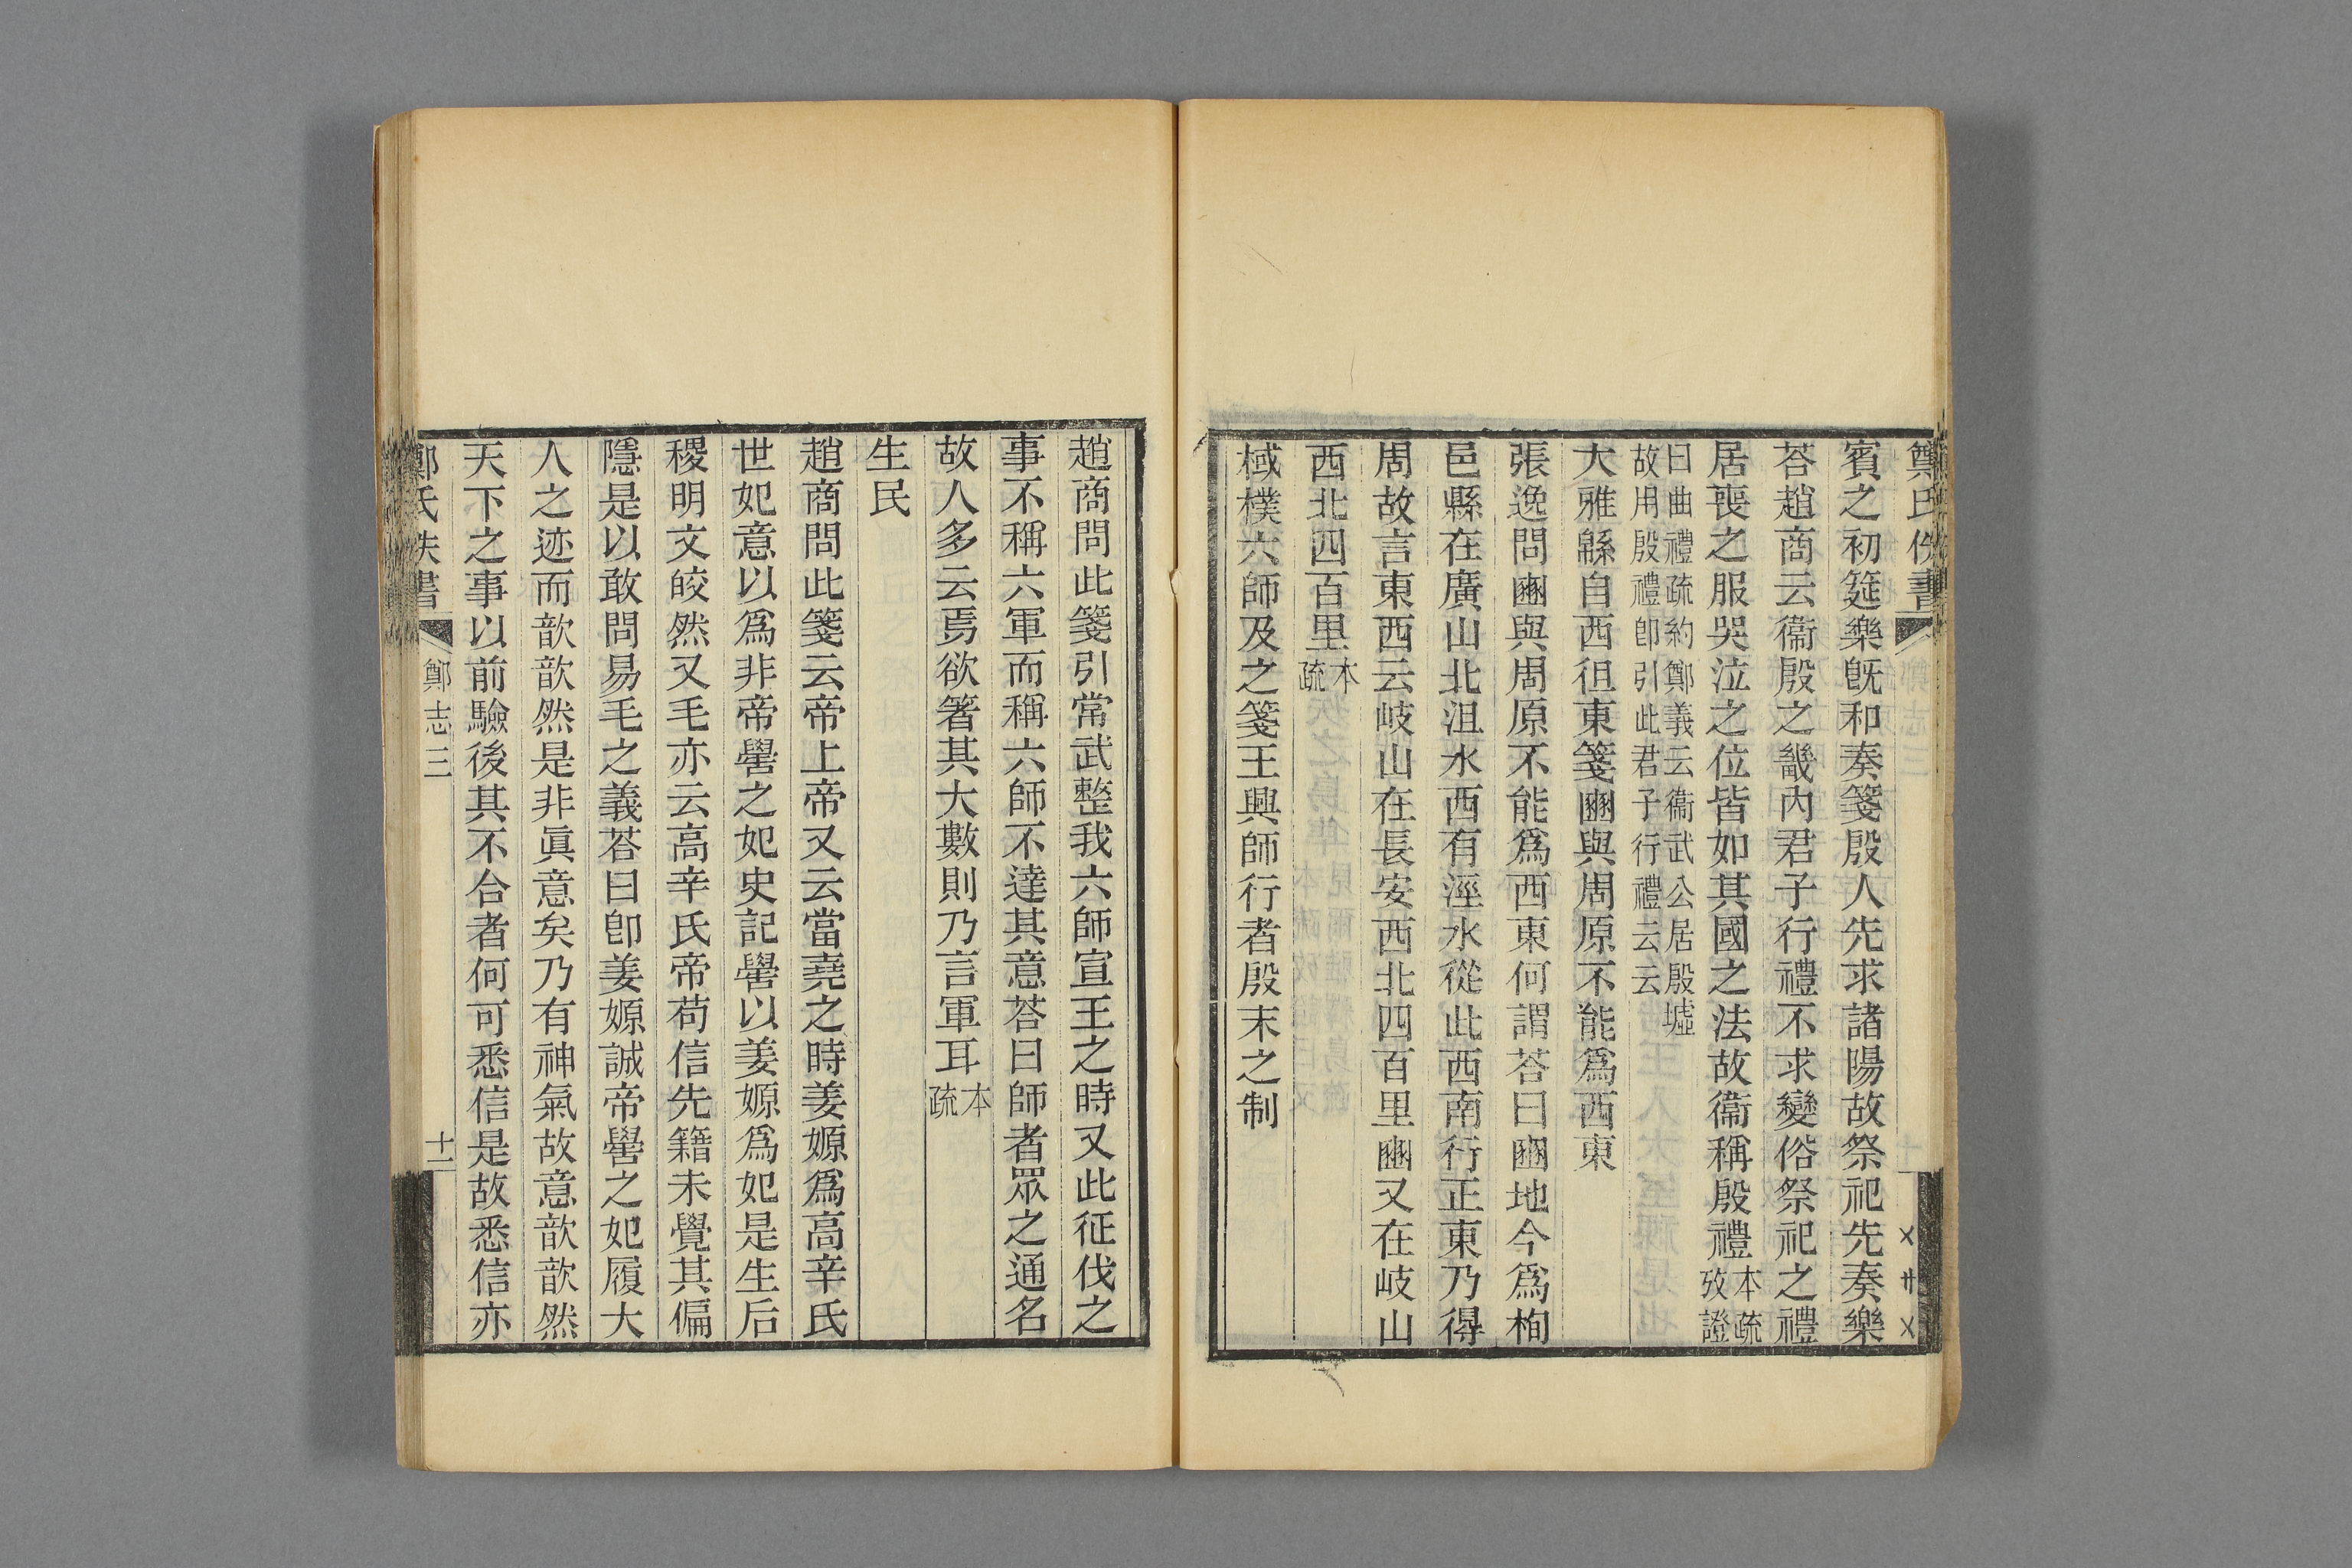 鄭氏佚書
賓之初筵樂既和奏箋殷人先求諸陽故祭祀先奏樂
荅趙商云衞殷之畿內君子行禮不求變俗祭祀之禮
居喪之服哭泣之位皆如其國之法故衞稱殷禮本疏攷證
曰曲禮疏約鄭義云衞武公居殷墟
故用殷禮卽引此君子行禮云云
大雅緜自西徂東箋豳與周原不能爲西東
張逸問豳與周原不能爲西東何謂荅曰豳地今爲栒
邑縣在廣山北沮水西有涇水從此西南行正東乃得
周故言東西云岐山在長安西北四百里豳又在岐山
西北四百里本疏
棫樸六師及之箋王興師行者殷末之制
趙商問此箋引常武整我六師宣王之時又此征伐之
事不稱六軍而稱六師不達其意荅曰師者眾之通名
故人多云焉欲箸其大數則乃言軍耳本疏
生民
趙商問此箋云帝上帝又云當堯之時姜嫄爲高辛氏
世妃意以爲非帝嚳之妃史記嚳以姜嫄爲妃是生后
稷明文皎然又毛亦云高辛氏帝苟信先籍未覺其偏
隱是以敢問易毛之義荅曰卽姜嫄誠帝嚳之妃履大
人之迹而歆歆然是非眞意矣乃有神氣故意歆歆然
天下之事以前驗後其不合者何可悉信是故悉信亦
鄭氏佚書 鄭志三 十一